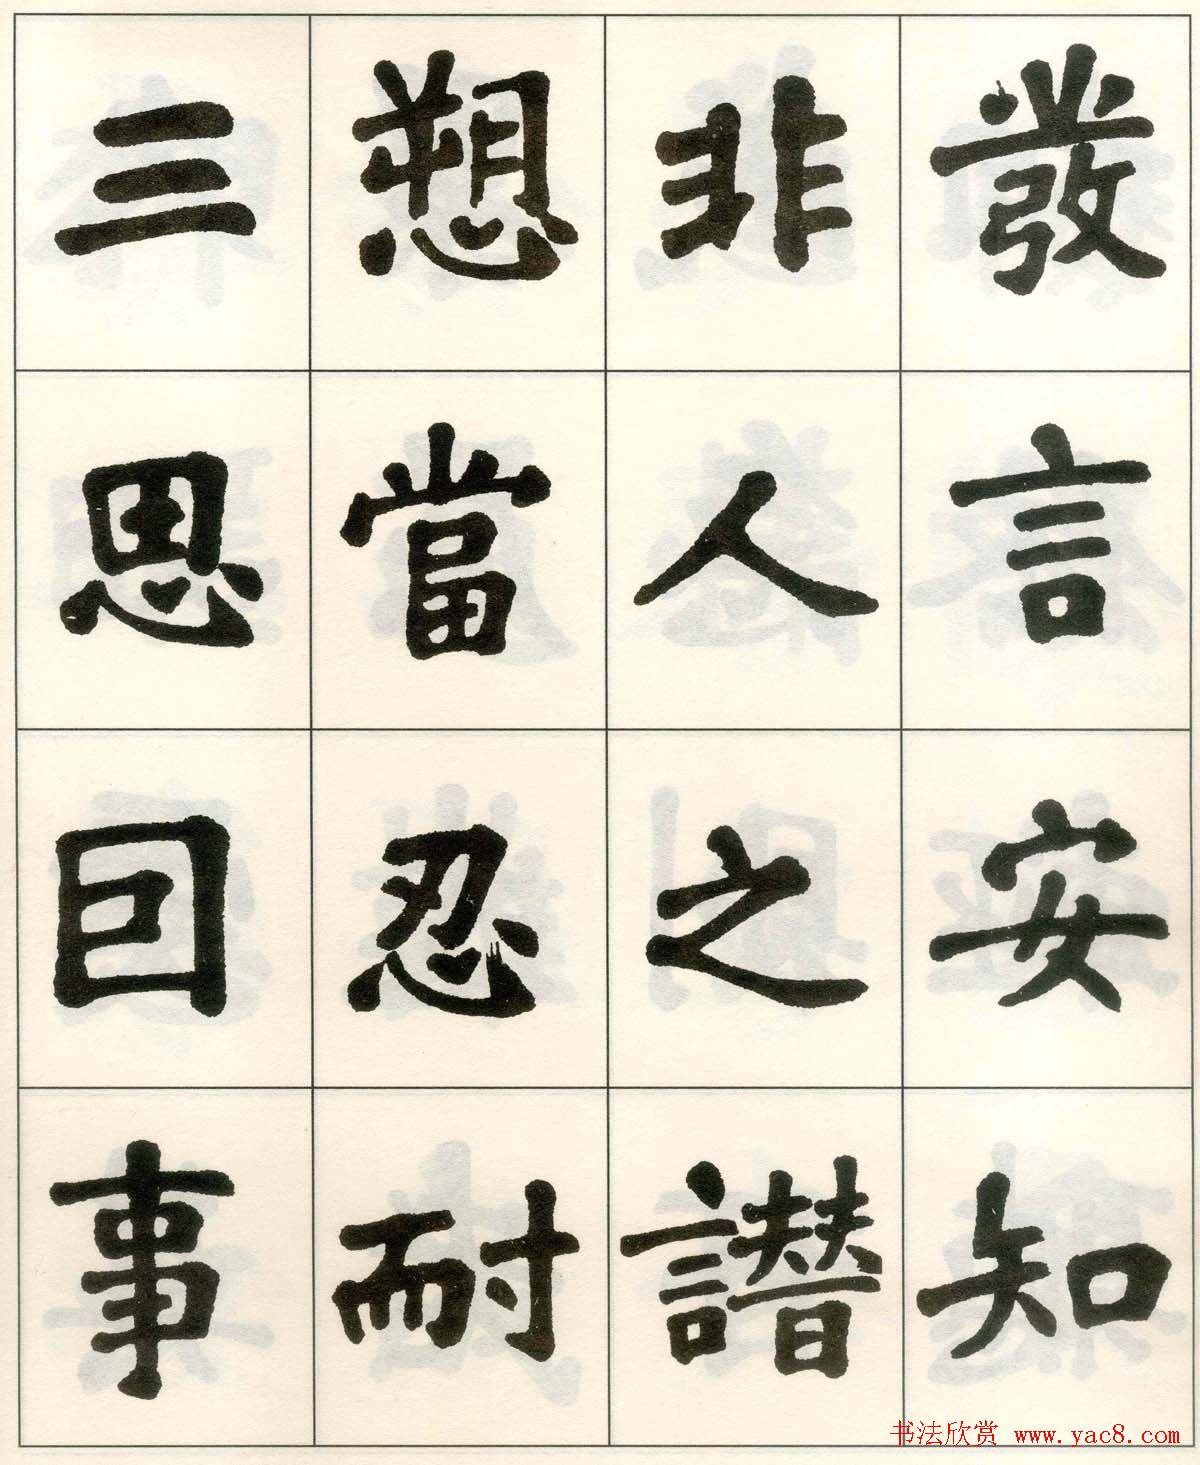 發言安知
非人之譛
愬當忍耐
三思囙事
书法欣赏 www.yac8.com